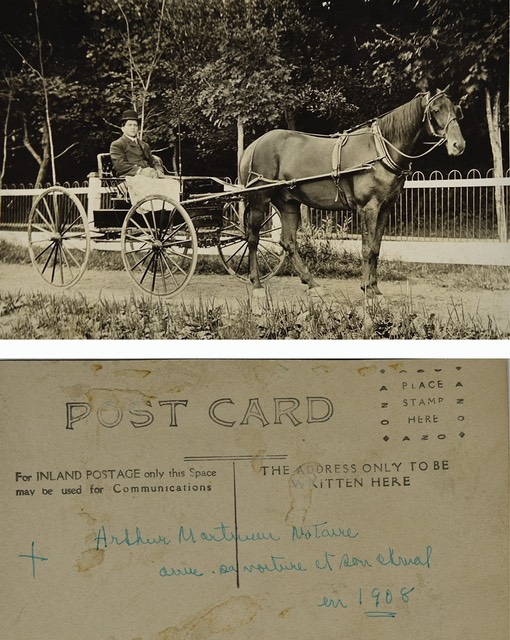 POST CARD
A PLACE A
Z STAMP Z
O HERE O
AZO
For INLAND POSTAGE only this Space
may be used for Communications
THE ADDRESS ONLY TO BE
WRITTEN HERE
+ Arthur Martineau Notaire
avec sa voiture et son cheval
en 1908